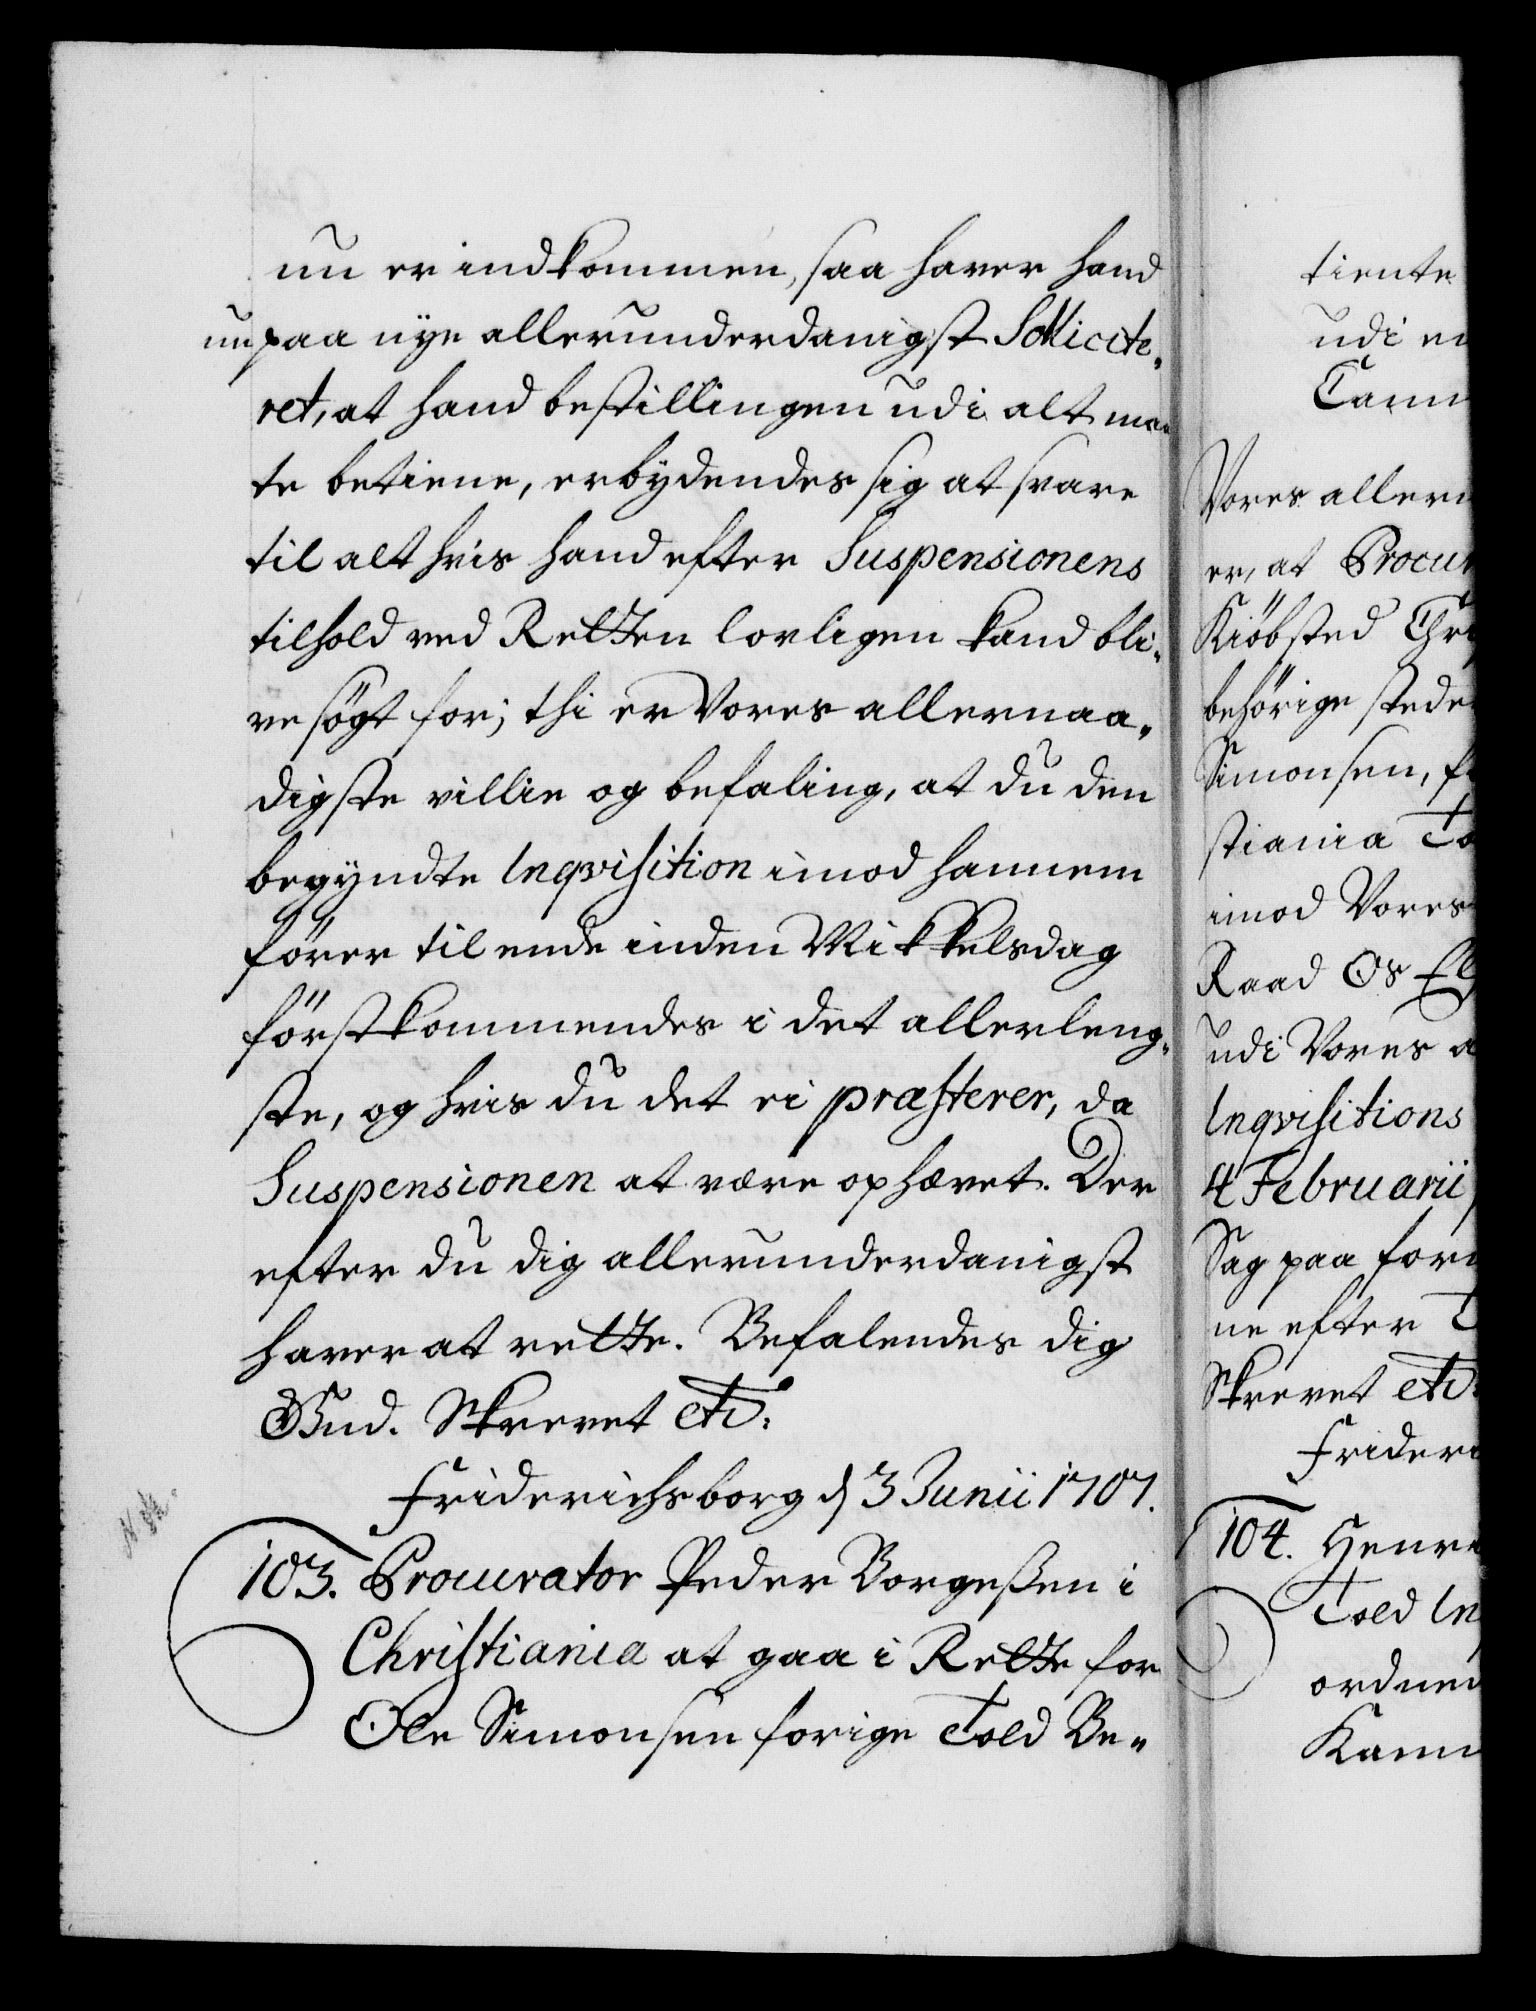 nu er indkommen, saa haver hand
nu paa nye allerunderdanigst Sollicite-
ret, at hand bestillingen udi alt maa-
te betiene, erbydendes sig at svare
til alt hvis hand efter Suspensionens
tilhold ved Retten lovligen kand bli-
ve søgt for; thi er Vores allernaa-
digste villie og befaling, at du den
begyndte Inqvisition imod hannem
fører til ende inden Mikkelsdag
førstkommendes i det allerleng-
ste, og hvis du det ei præsterer, da
Suspensionen at være ophævet. Der
efter du dig allerunderdanigst
haver at rette. Befalendes dig
Gud. Skrevet etc:
Friderichsborg d 3 Junii 1707.
103. Procurator Peder Borgeßen i
Christiania at gaa i Rette for
Ole Simonsen forige Told Be-
tiente
udi
Vores allern
er, at Procur
Kiøbsted Chri
behørige steder
Simonsen, fo
stiania To
imod Vores
Raad Os El
udi Vores a
Inqvisitions
4 Februarii
Sag paa for
ne efter
Skrevet etc:
Frideri
104. Henri
Told In
ordned
Kam